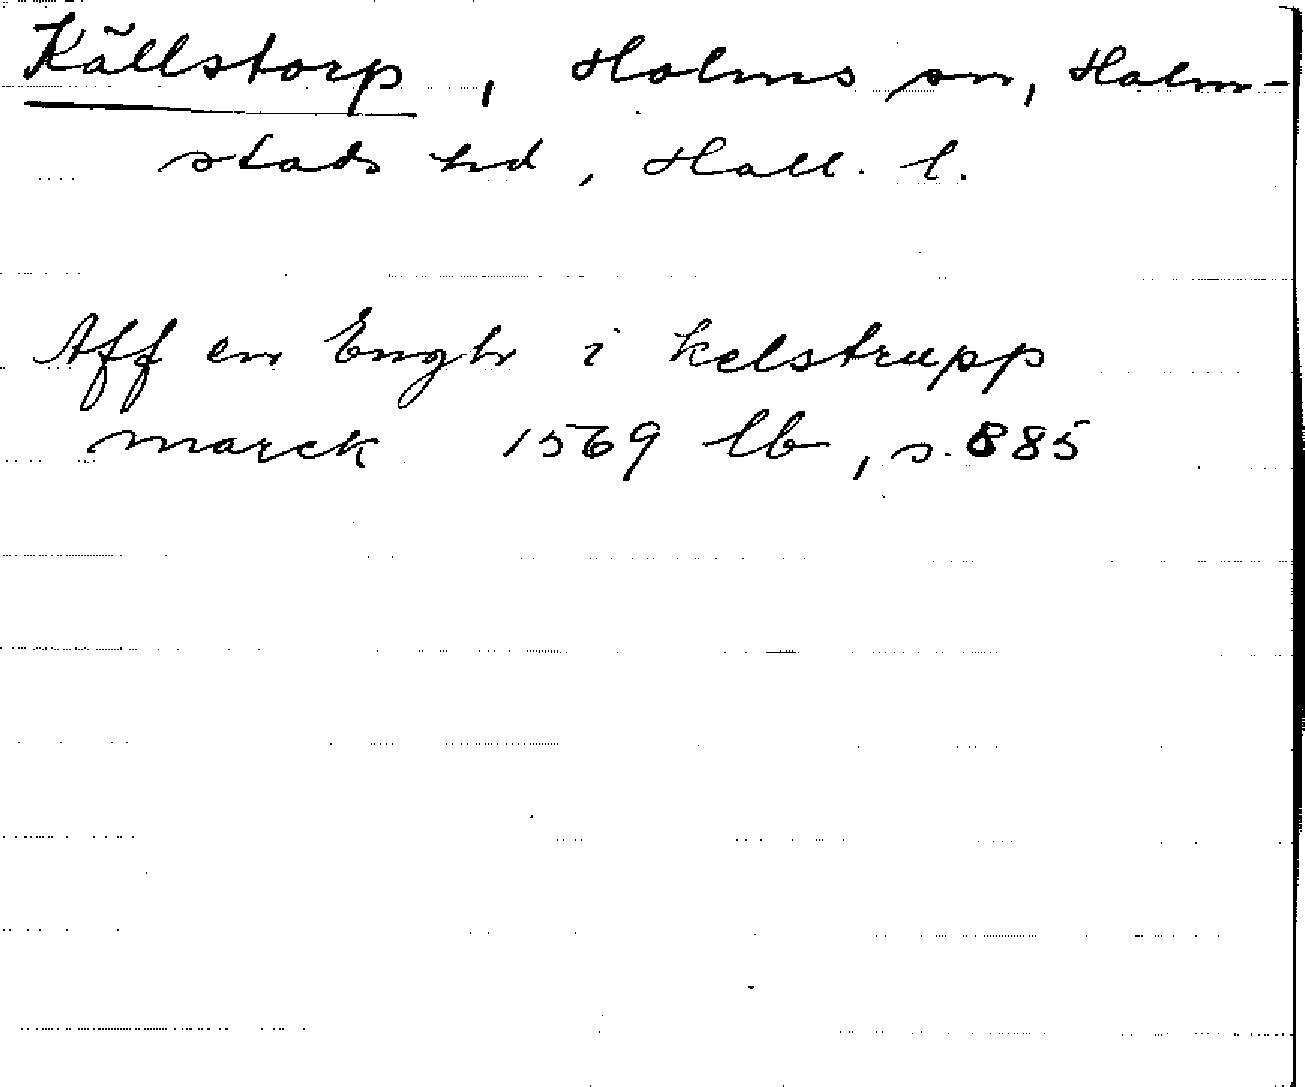 Källstorp, Holms sn, Halm-
stads hd, Hall. l.
Aff en Engh i kelstrupp
marck 1569 lb, s. 885